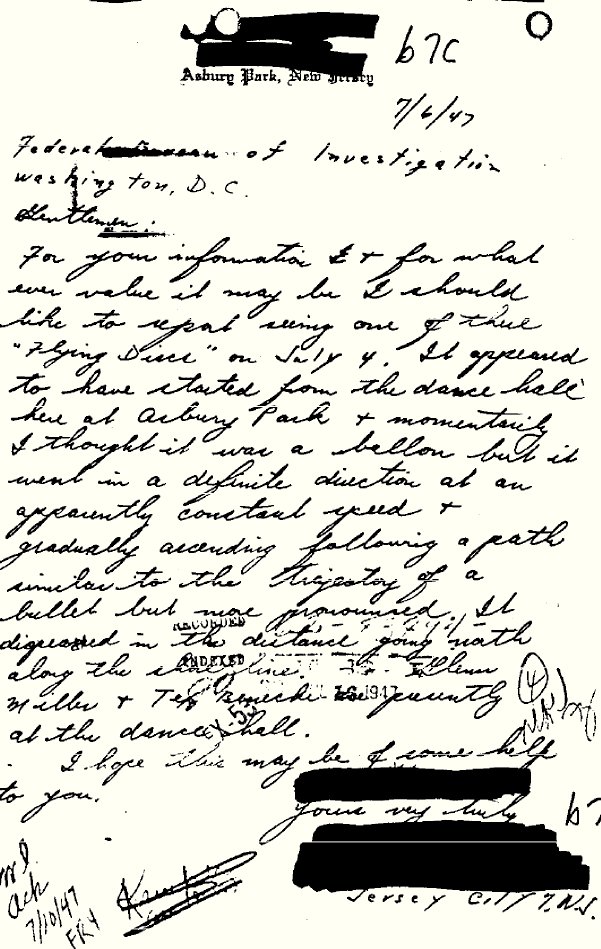 b7C
Asbury Park, New Jersey
7/6/47
Federal Bureau of Investigation
Washington, D.C.
Gentlemen:
For your information & for what
ever value it may be I should
like to report seeing one of these
"Flying Discs" on July 4. It appeared
to have started from the dance hall
here at Asbury Park & momentarily
I thought it was a ballon but it
went in a definite direction at an
apparently constant speed &
gradually ascending following a path
similar to the trajectory of a
bullet but more pronounced. It
RECORDED
dispeared in the distance going north
INDEXED
along the shore line. Glenn
Miller & Tex Beneke presently
1947
at the dance hall.
X-53
4
I hope this may be of some help
to you.
yours very truly
b7
Jersey City 7. N.J.
Ack
7/10/47